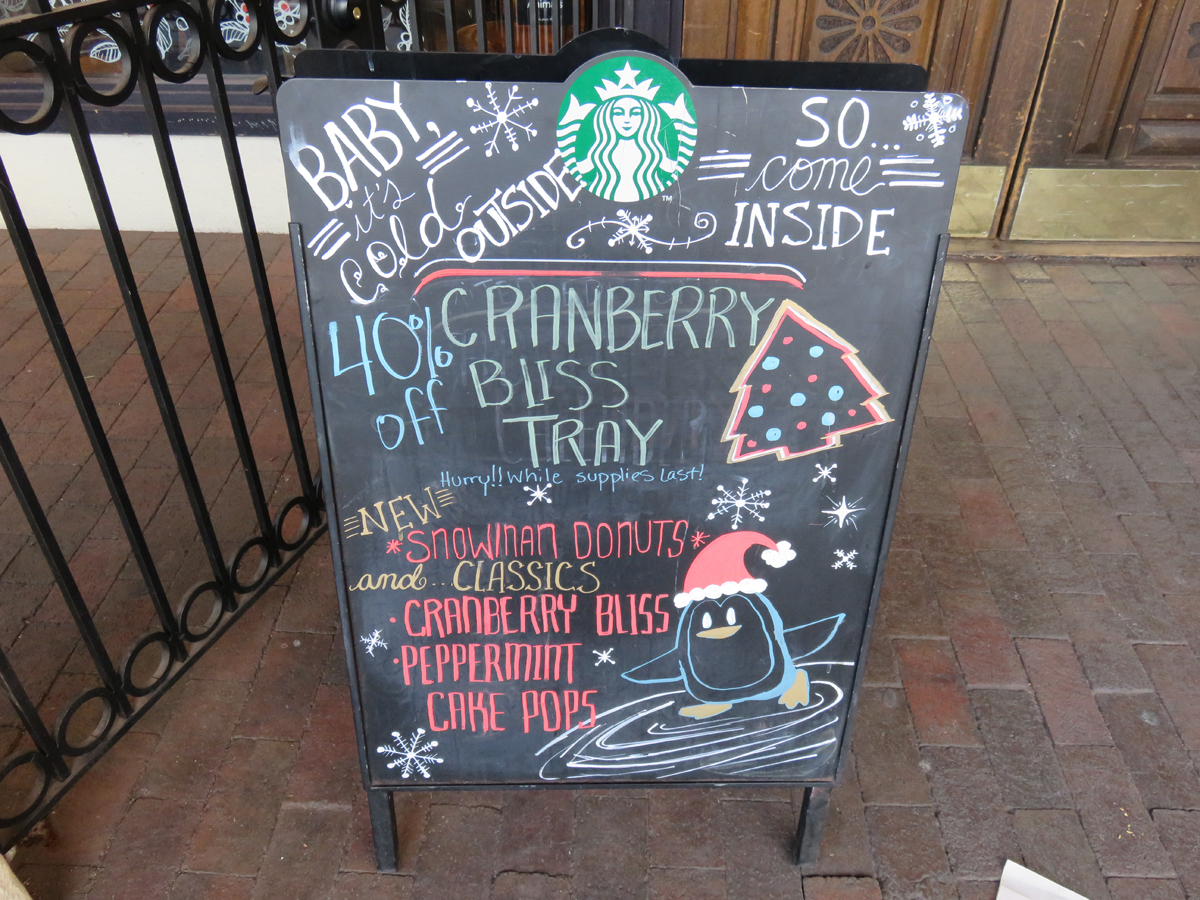 BABY,
it's
Cold
OUTSIDE
SO...
come
INSIDE
TM
40% off
CRANBERRY
BLISS
TRAY
Hurry!! While supplies Last!
NEW
*SNOWMAN DONUTS*
and... CLASSICS
• CRANBERRY BLISS
• PEPPERMINT
CAKE POPS